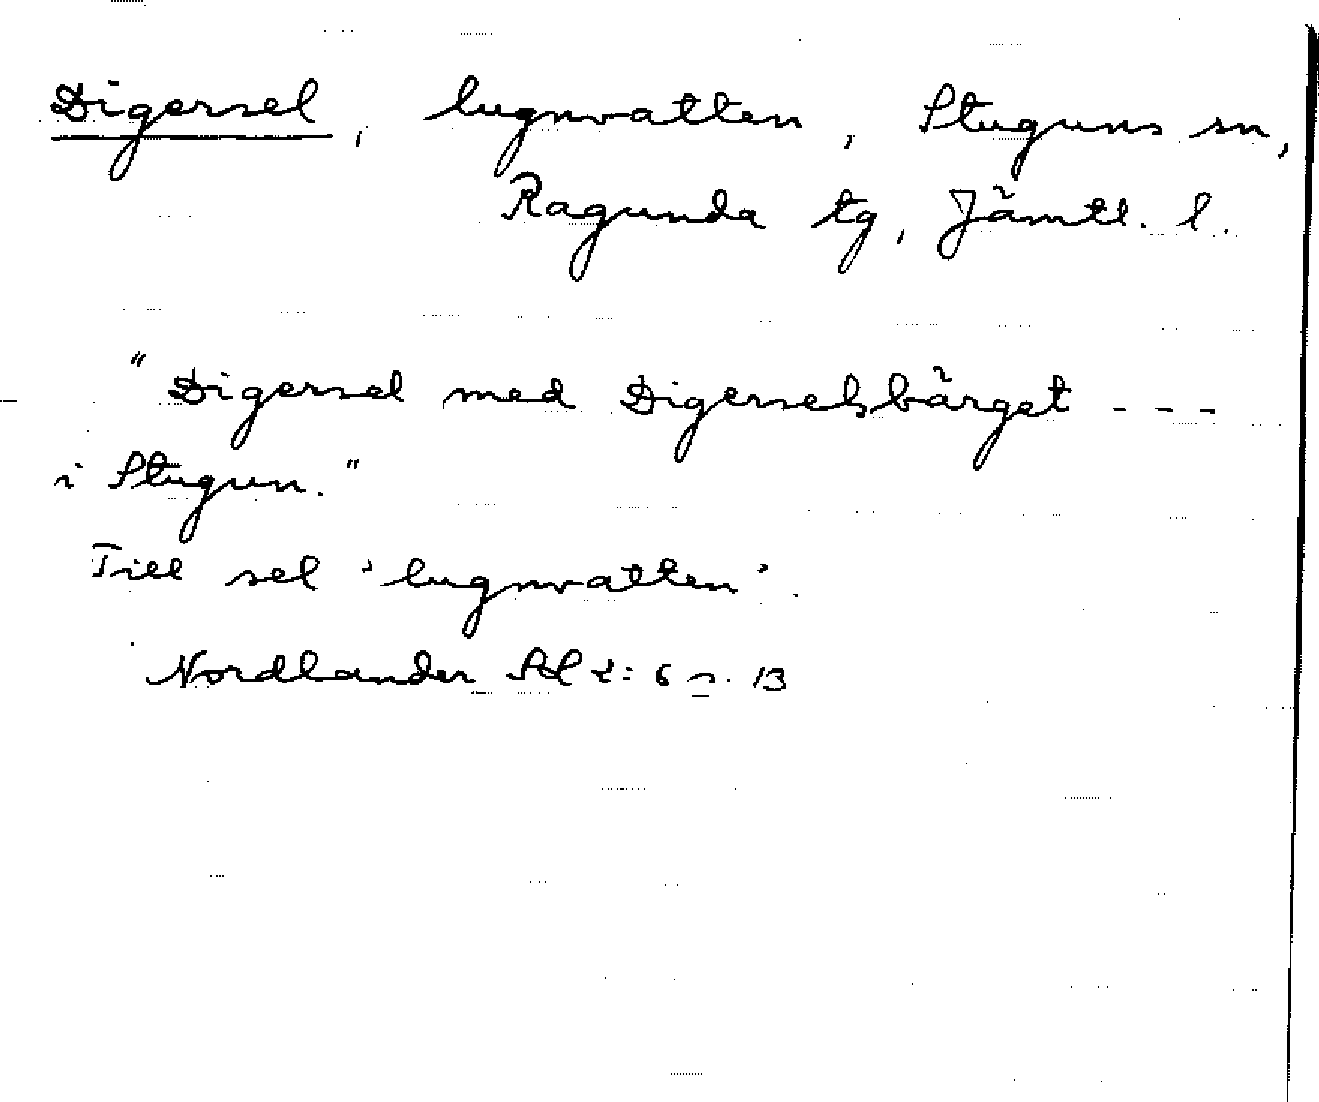 Digersel, lugnvatten, Stuguns sn,
Ragunda tg, Jämtl. l.
"Digersel med Digerselsbärget ---
i Stugun."
Till sel 'lugnvatten'.
Nordlander 2:6 s. 13